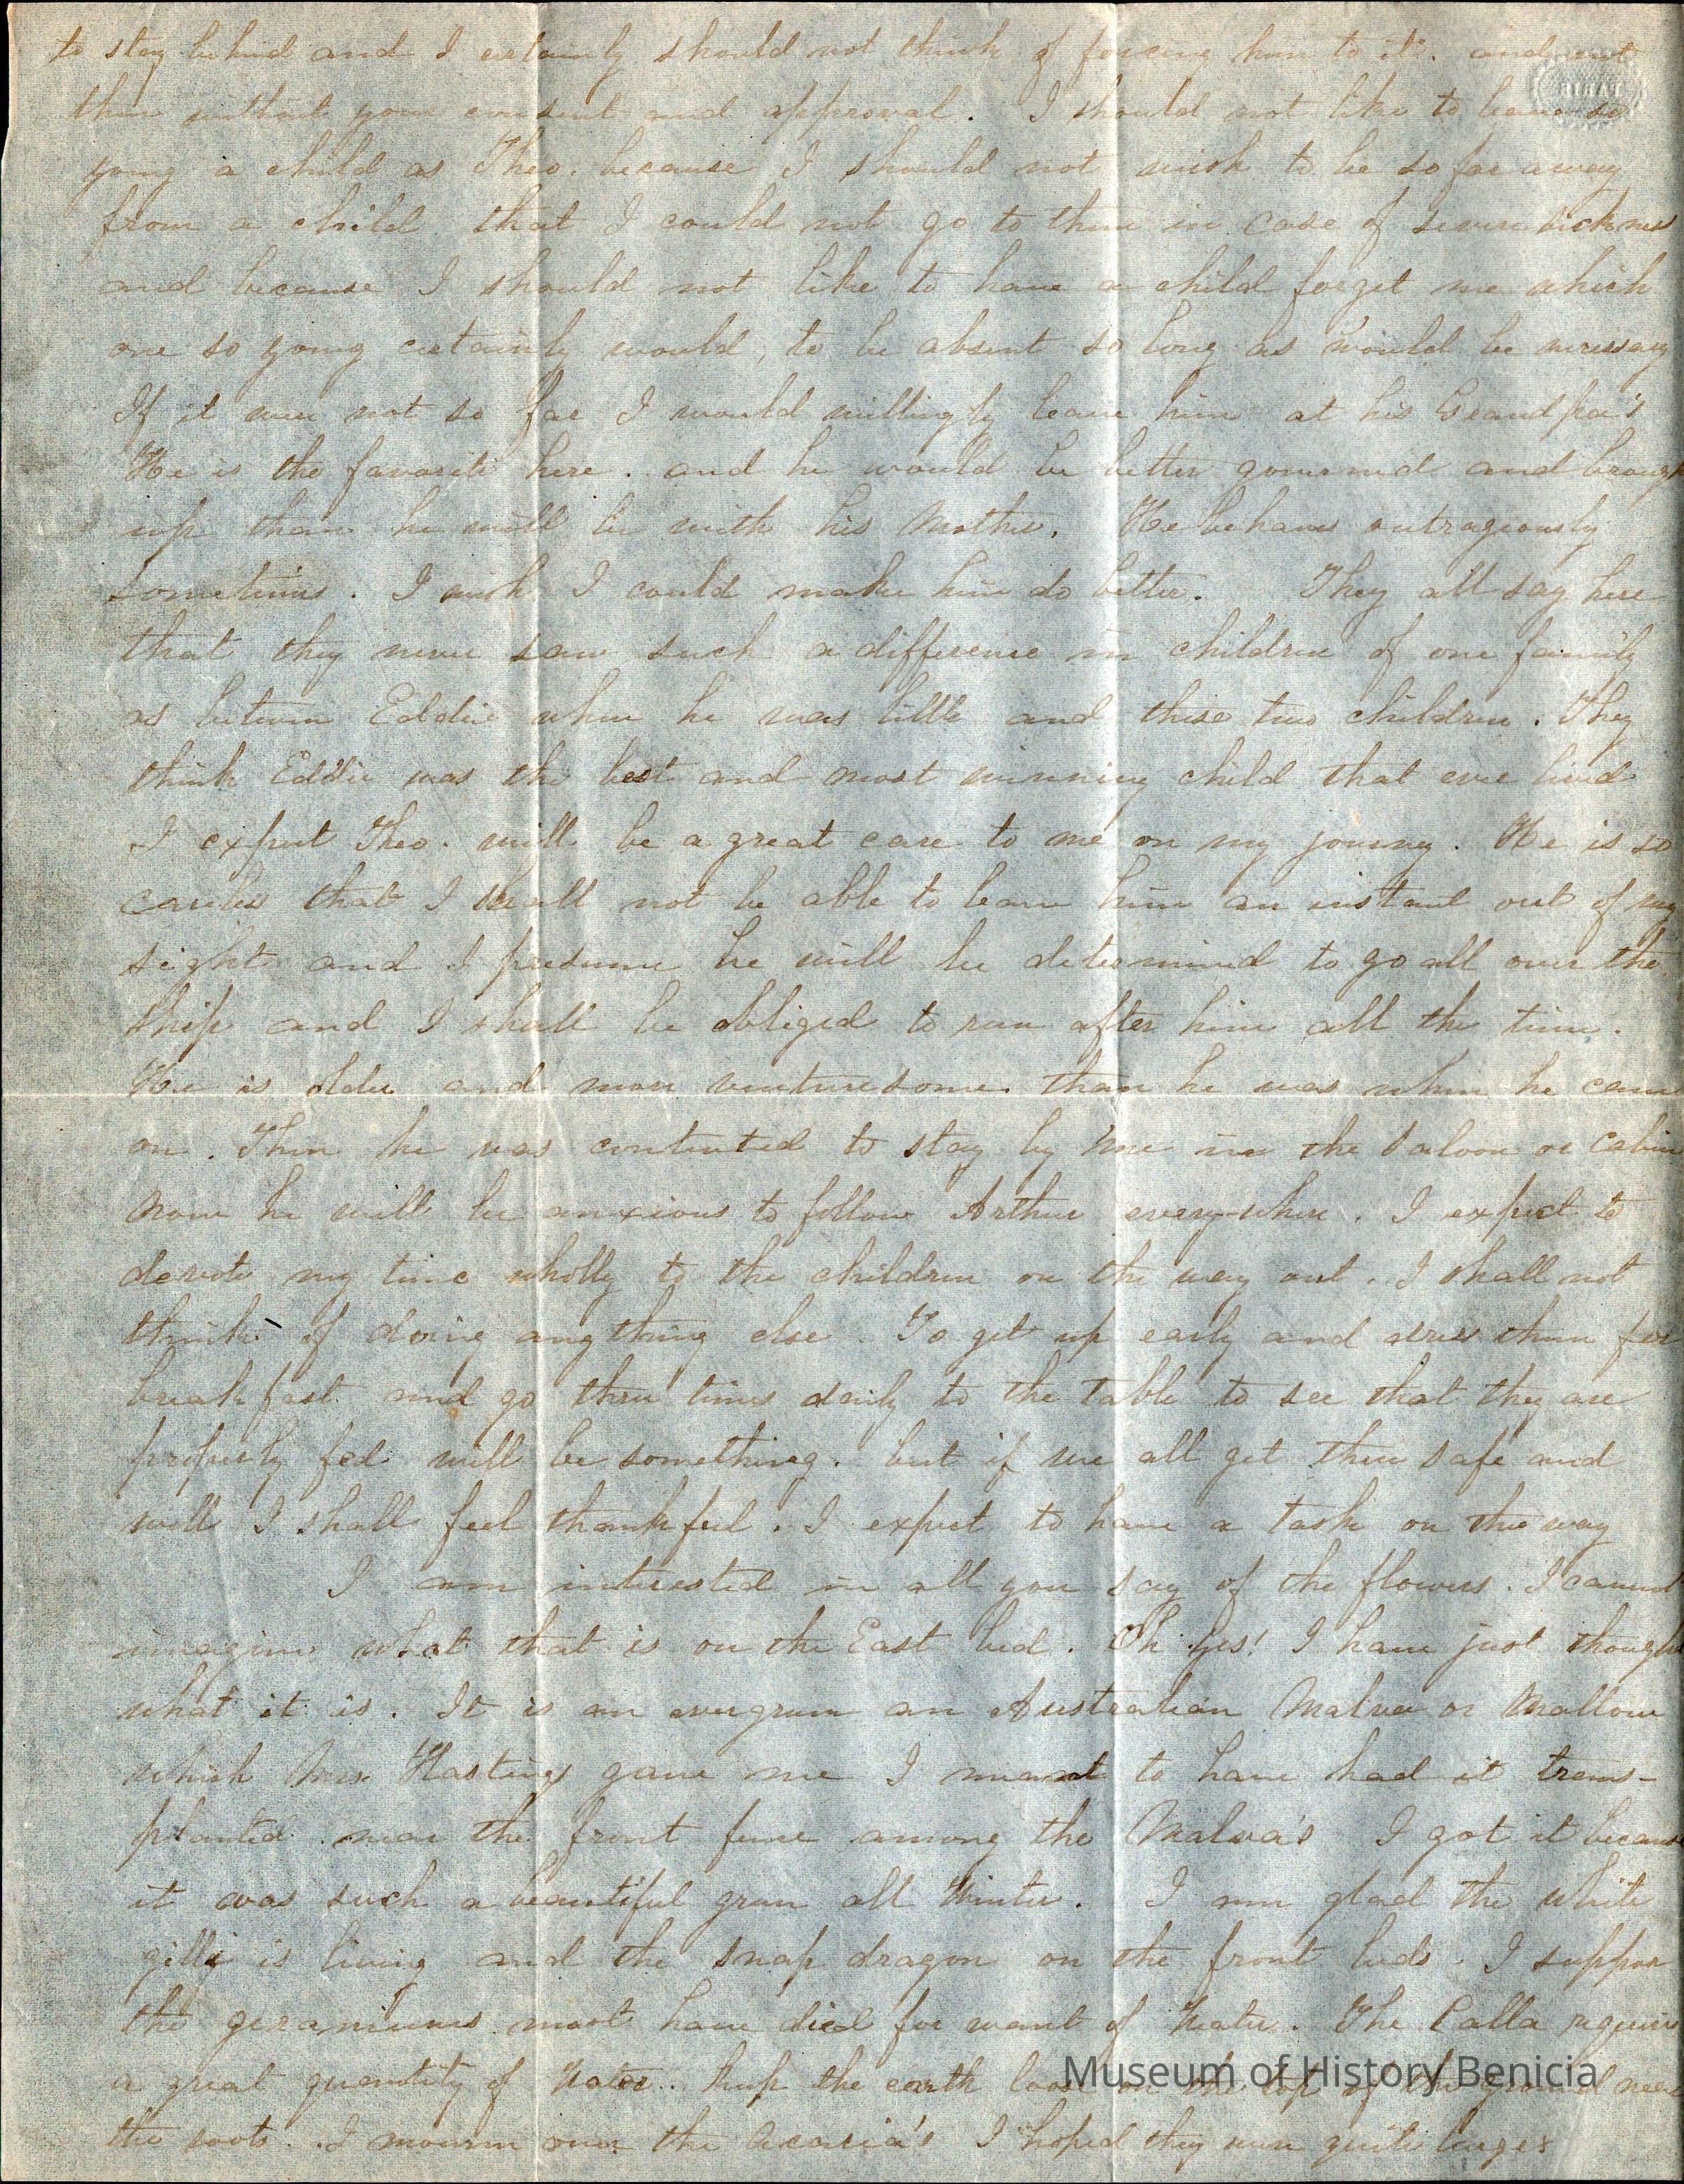 to stay behind and I certainly should not think of forcing him to it. and not
then without your consent and approval. I should not like to leave so
yong a child as Theo. because I should not wish to be so far away
from a child that I could not go to them in case of severe sickness
and because I should not like to have a child forget me which
one so yong certainly would, to be absent so long as would be necessary
If it were not so far I would willingly leave him at his Grandpa's
He is the favorite here. and he would be better governed and brough
up than he will be with his Mother. He behaves outrageously
sometimes. I wish I could make him do better. They all say here
that they never saw such a difference in children of one family
as between Eddie when he was little and these two children. They
think Eddie was the best and most winning child that ever lived
I expect Theo. will be a great care to me on my journey. He is so
careless that I shall not be able to leave him an instant out of my
sight and I presume he will be determined to go all over the
ship and I shall be obliged to run after him all the time.
He is older and more venturesome than he was when he came
on. Then he was contented to stay by me in the saloon or cabin
now he will be anxious to follow Arthur every-where. I expect to
devote my time wholly to the children on the way out. I shall not
think of doing any thing else. To get up early and dress them for
breakfast and go three times daily to the table to see that they are
properly fed will be something. but if we all get there safe and
well I shall feel thankful. I expect to have a task on the way
I am interested in all you say of the flowers. I cannot
imagine what that is on the East bed. Oh yes! I have just though
what it is. It is an evergreen an Australian Malva or Mallow
which Mrs. Hastings gave me I meant to have had it trans-
planted near the front fence among the Malva's I got it because
it was such a beautiful green all Winter. I am glad the white
gilly is living and the snap dragon on the front beds. I suppose
the geraniums most have died for want of Water. The Calla requires
a great quantity of Water. Keep the earth loose on the top of the ground near
the roots. I mourn over the Acacia's I hoped they were quite large
PARIS
Museum of History Benicia